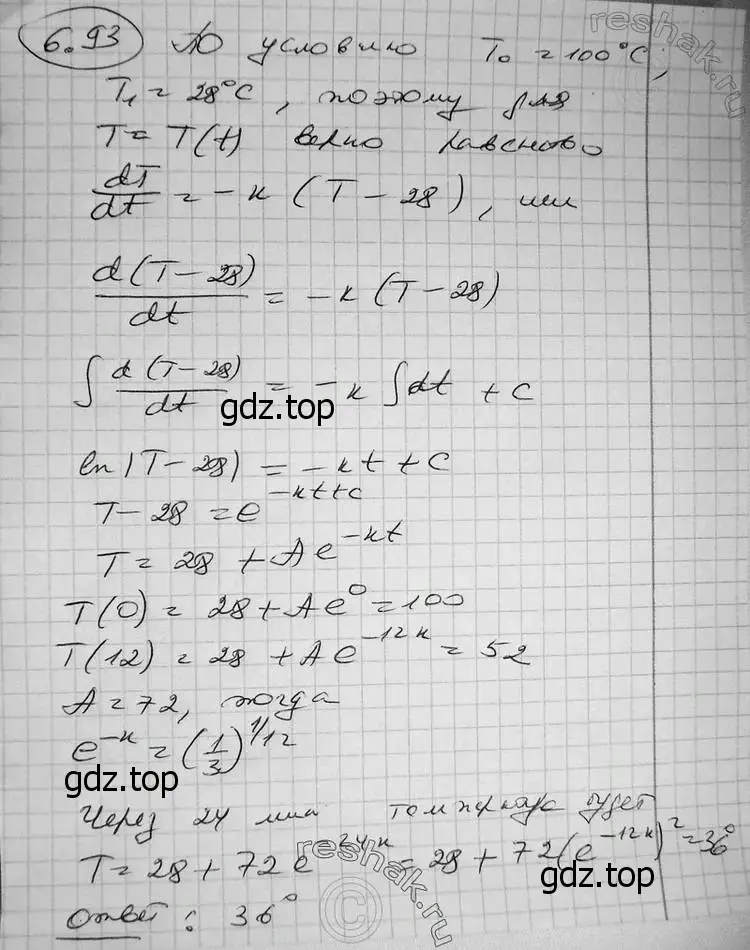 6.93 По условию T₀ = 100°C,
T₁ = 28°C, поэтому для
T = T(t) верно равенство
dT/dt = -k (T - 28), или
d(T - 28)/dt = -k (T - 28)
∫ d(T - 28)/dt = -k ∫ dt + C
ln|T - 28| = -kt + C
T - 28 = e^(-kt+c)
T = 28 + Ae^(-kt)
T(0) = 28 + Ae⁰ = 100
T(12) = 28 + Ae^(-12k) = 52
A = 72, тогда
e^(-k) = (1/3)^(1/12)
Через 24 мин температура будет
T = 28 + 72e^(-24k) = 28 + 72(e^(-12k))² = 36°
Ответ: 36°
reshak.ru
gdz.top
gdz.top
gdz.top
©
reshak.ru